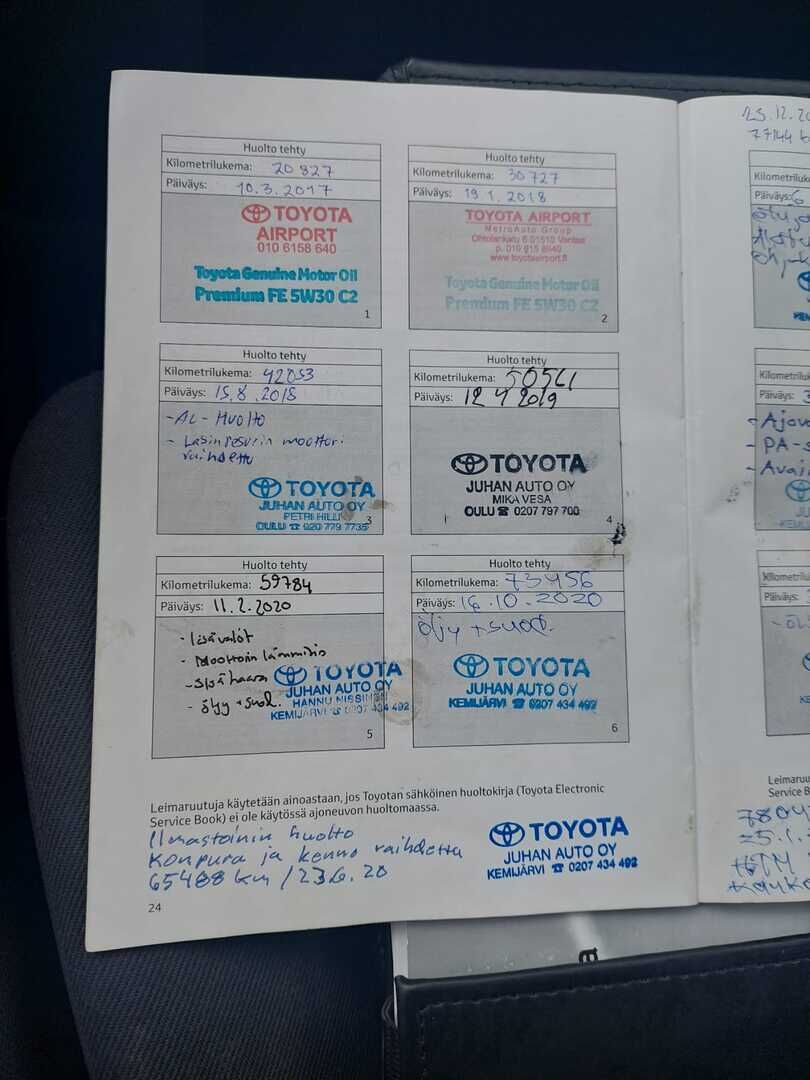 Huolto tehty
Kilometrilukema: 20 827
Päiväys: 10.3.2017
TOYOTA
AIRPORT
010 6158 640
Toyota Genuine Motor Oil
Premium FE 5W30 C2
1
Huolto tehty
Kilometrilukema: 30 727
Päiväys: 19.1.2018
TOYOTA AIRPORT
MetroAuto Group
Ohtolankatu 6 01510 Vantaa
p. 010 615 8640
www.toyotairport.fi
Toyota Genuine Motor Oil
Premium FE 5W30 C2
2
Huolto tehty
Kilometrilukema: 42053
Päiväys: 15.8.2018
- AL - Huolto
- Lasinpesurin moottori
vaihdettu
TOYOTA
JUHAN AUTO OY
PETRI HILLI
OULU ☎ 020 779 7735
3
Huolto tehty
Kilometrilukema:
Päiväys: 12 4 2019
TOYOTA
JUHAN AUTO OY
MIKA VESA
OULU ☎ 0207 797 700
4
Huolto tehty
Kilometrilukema: 59784
Päiväys: 11.2.2020
- lisävalot
- Moottorin lämmitin
- sisähaara
- öljy + suod.
TOYOTA
JUHAN AUTO OY
HANNU NISSINEN
KEMIJÄRVI ☎ 0207 434 492
5
Huolto tehty
Kilometrilukema: 73456
Päiväys: 16.10.2020
öljy + suod.
TOYOTA
JUHAN AUTO OY
KEMIJÄRVI ☎ 0207 434 492
6
Leimaruutuja käytetään ainoastaan, jos Toyotan sähköinen huoltokirja (Toyota Electronic
Service Book) ei ole käytössä ajoneuvon huoltomaassa.
Ilmastoinin huolto
Konpura ja kenno vaihdettu
65488 km / 23.6.20
TOYOTA
JUHAN AUTO OY
KEMIJÄRVI ☎ 0207 434 492
24
77144
Päiväys:
- Ajova
- PA-s
- Avain
Päiväys:
Leimaru
Service B